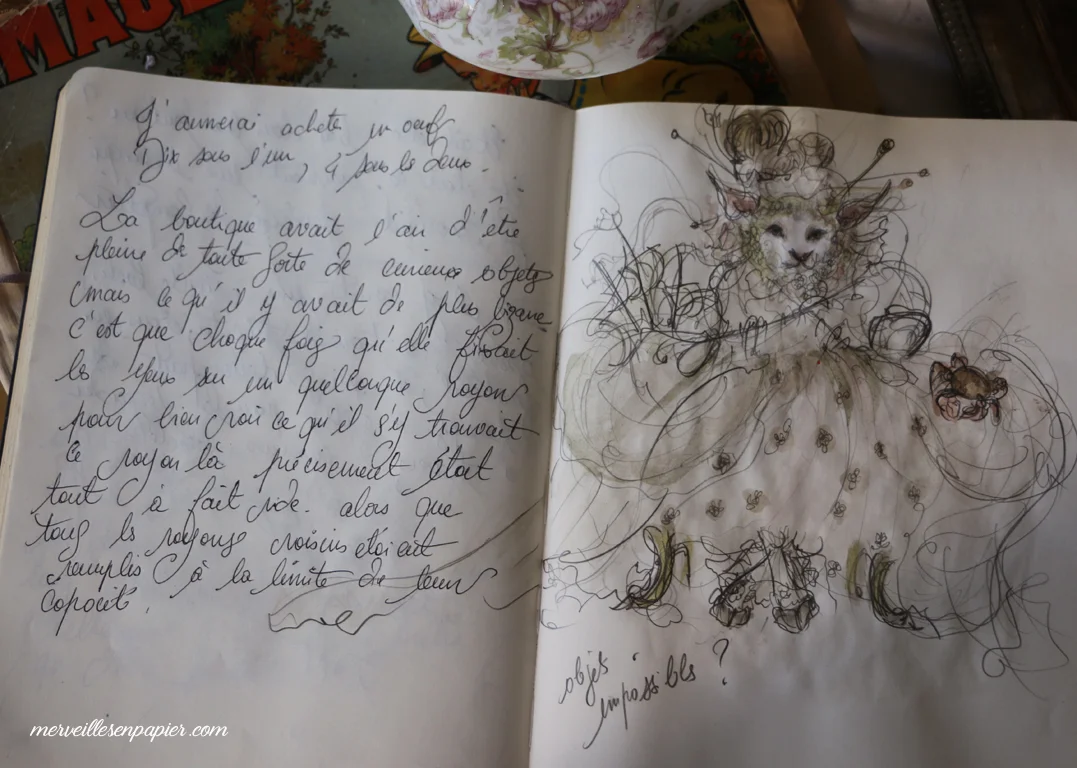 MAG
J'aimerai acheter un oeuf
Dix sous l'un, 4 sous les deux.
La boutique avait l'air d'être
pleine de toute sorte de curieux objets
(mais ce qu'il y avait de plus bizarre
c'est que chaque fois qu'elle fixait
les yeux sur un quelconque rayon
pour bien voir ce qu'il s'y trouvait
ce rayon là précisement était
tout à fait vide. alors que
tous les rayons voisins étaient
remplis à la limite de leur
capacité.
objets
impossibles ?
merveillesenpapier.com